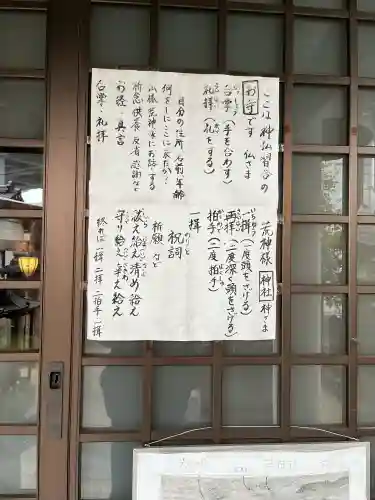 ここは神仏習合の
お寺 仏さま
合掌(手を合わす)
礼拝(礼をする)
自分の住所 名前 年齢
何をしにここに来たか?
山様 荒神様にお話する
祈念 供養 反省 感謝など
お経・真言
合掌・礼拝
荒神様 神社 神さま
一揖(一度頭をさげる)
再拝(二度深く頭をさげる)
拍手(二度拍手)
一揖
祝詞
祈願 など
祓え給え 清め給え
守り給え 幸え給え
終れば 一揖 二揖 二拍手 一揖